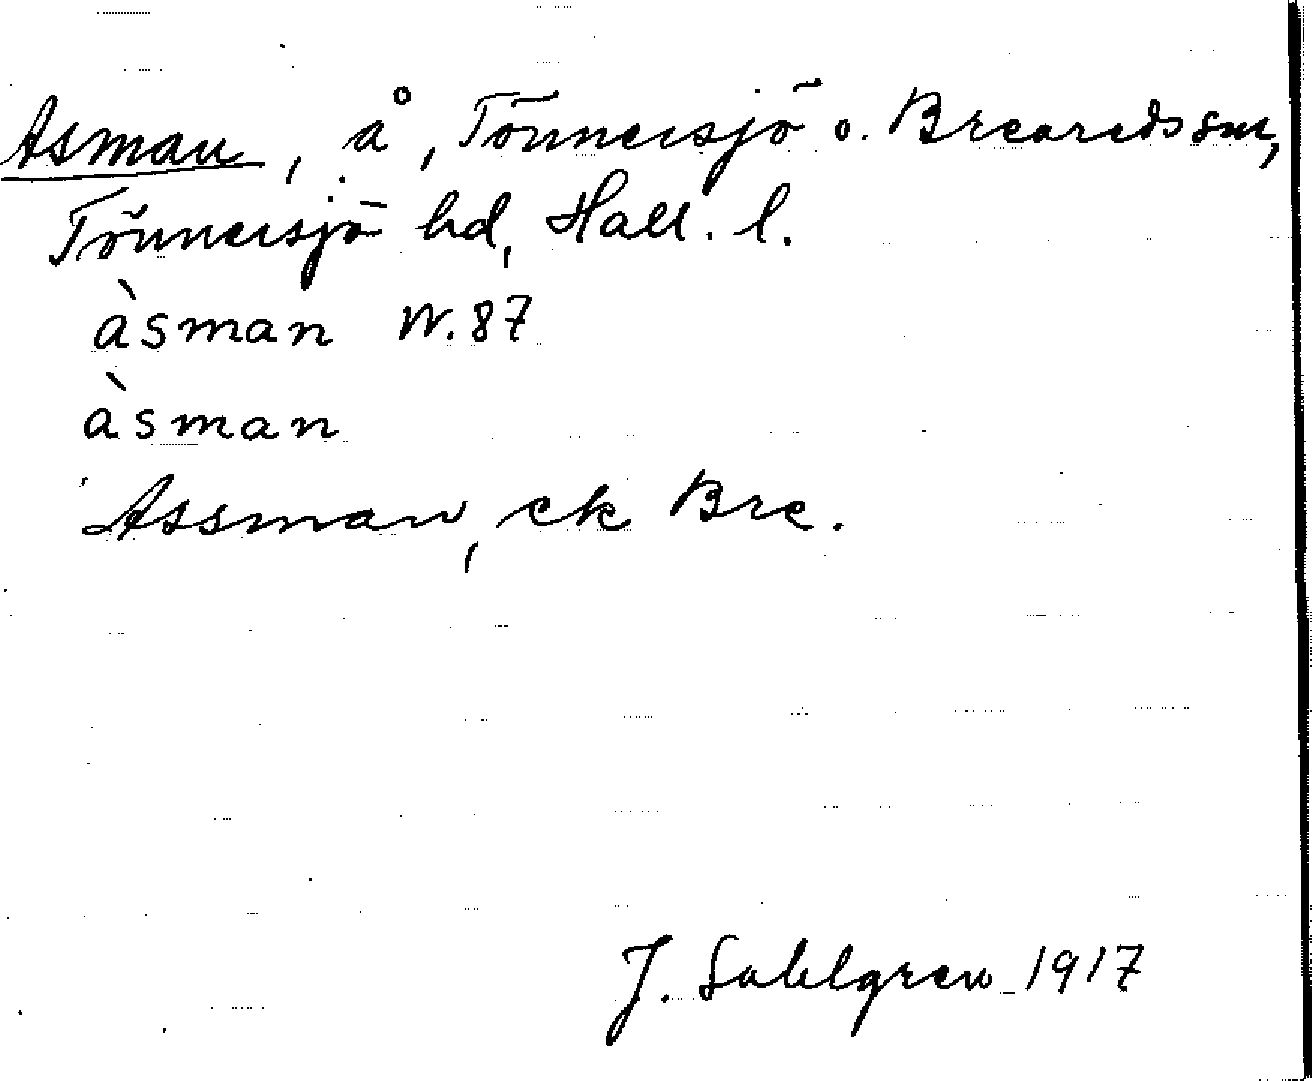 Asman, å, Tönnersjö o. Breareds snr,
Tönnersjö hd, Hall. l.
àsman W. 87
àsman
Assman, ek Bre.
J. Sahlgren 1917